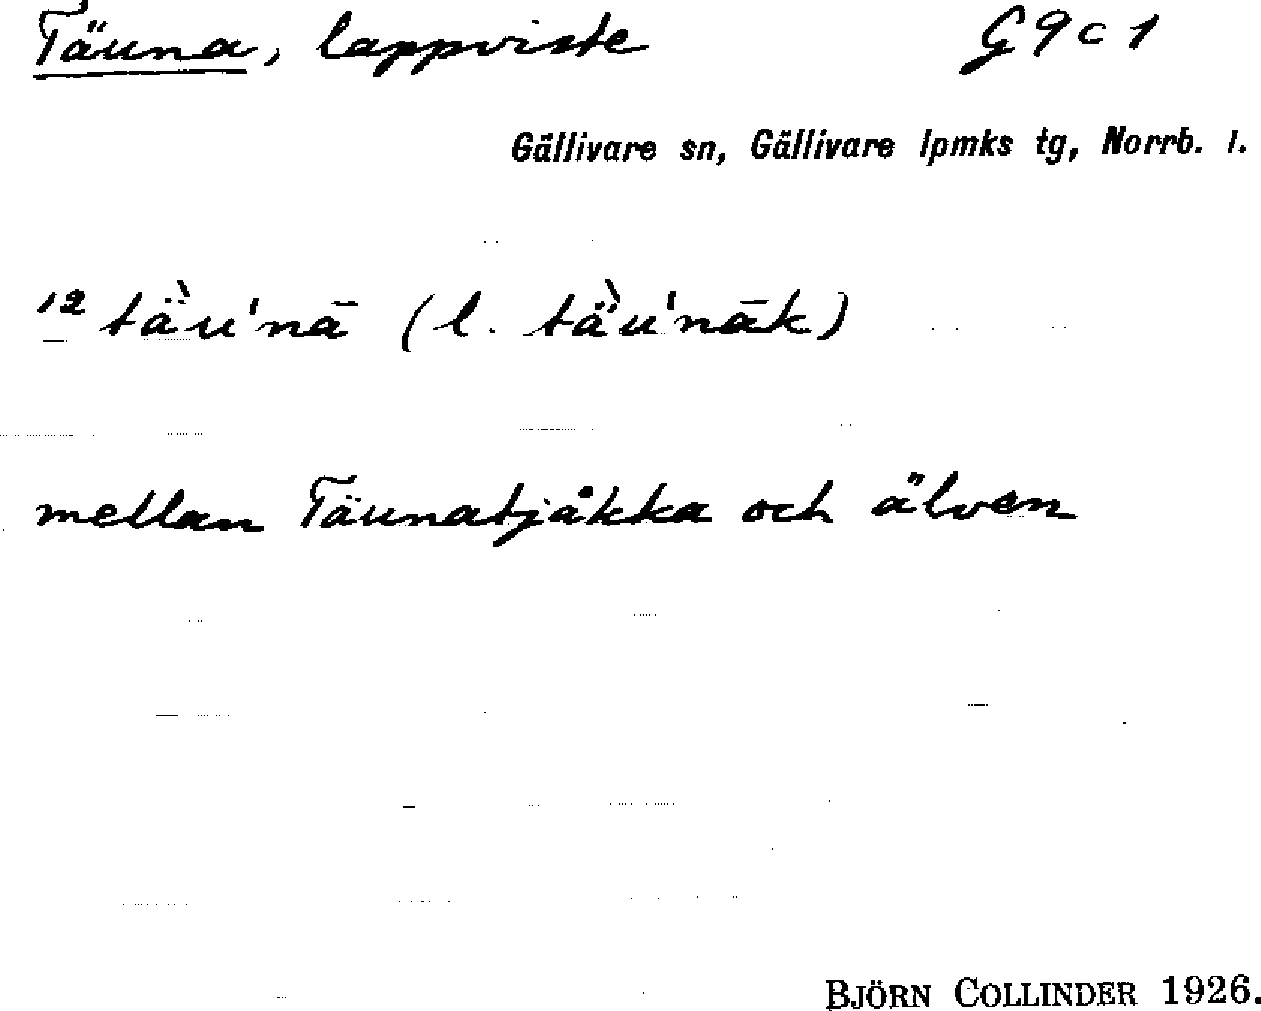 Täuna, lappviste G9c1
Gällivare sn, Gällivare lpmks tg, Norrb. l.
12 tä̀u'nā (l. tä̀u'nāk)
mellan Täunatjåkka och älven
BJÖRN COLLINDER 1926.